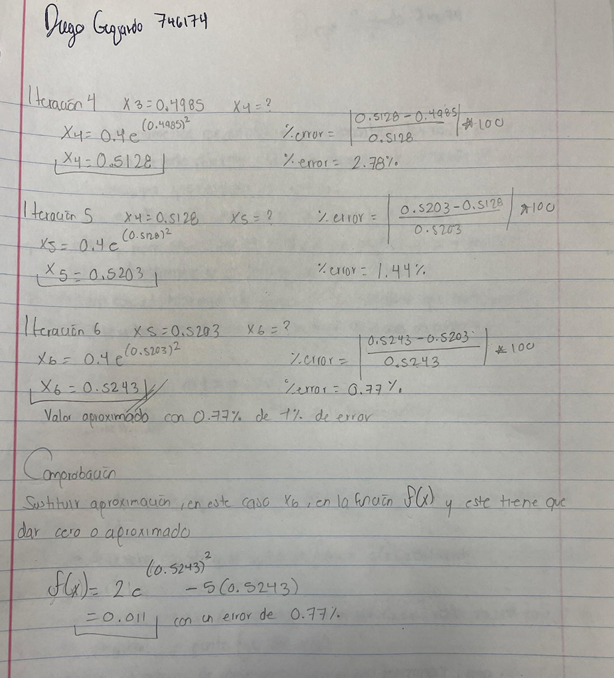 Diego Gerardo 746174
Iteración 4 X3=0.4985 X4=?
X4= 0.4e^(0.4985)^2 %error= |0.5128-0.4985/0.5128| *100
X4=0.5128 %error= 2.78%
Iteración 5 X4=0.5128 X5=? %error= |0.5203-0.5128/0.5203| *100
X5= 0.4e^(0.5128)^2
X5=0.5203 %error= 1.44%
Iteración 6 X5=0.5203 X6=? %error= |0.5243-0.5203/0.5243| *100
X6= 0.4e^(0.5203)^2
X6=0.5243 %error= 0.77%
Valor aproximado con 0.77% de 1% de error
Comprobación
Sustituir aproximación, en este caso X6, en la función f(x) y este tiene que
dar cero o aproximado
f(x)= 2e^(0.5243)^2 -5(0.5243)
=0.011 con un error de 0.77%